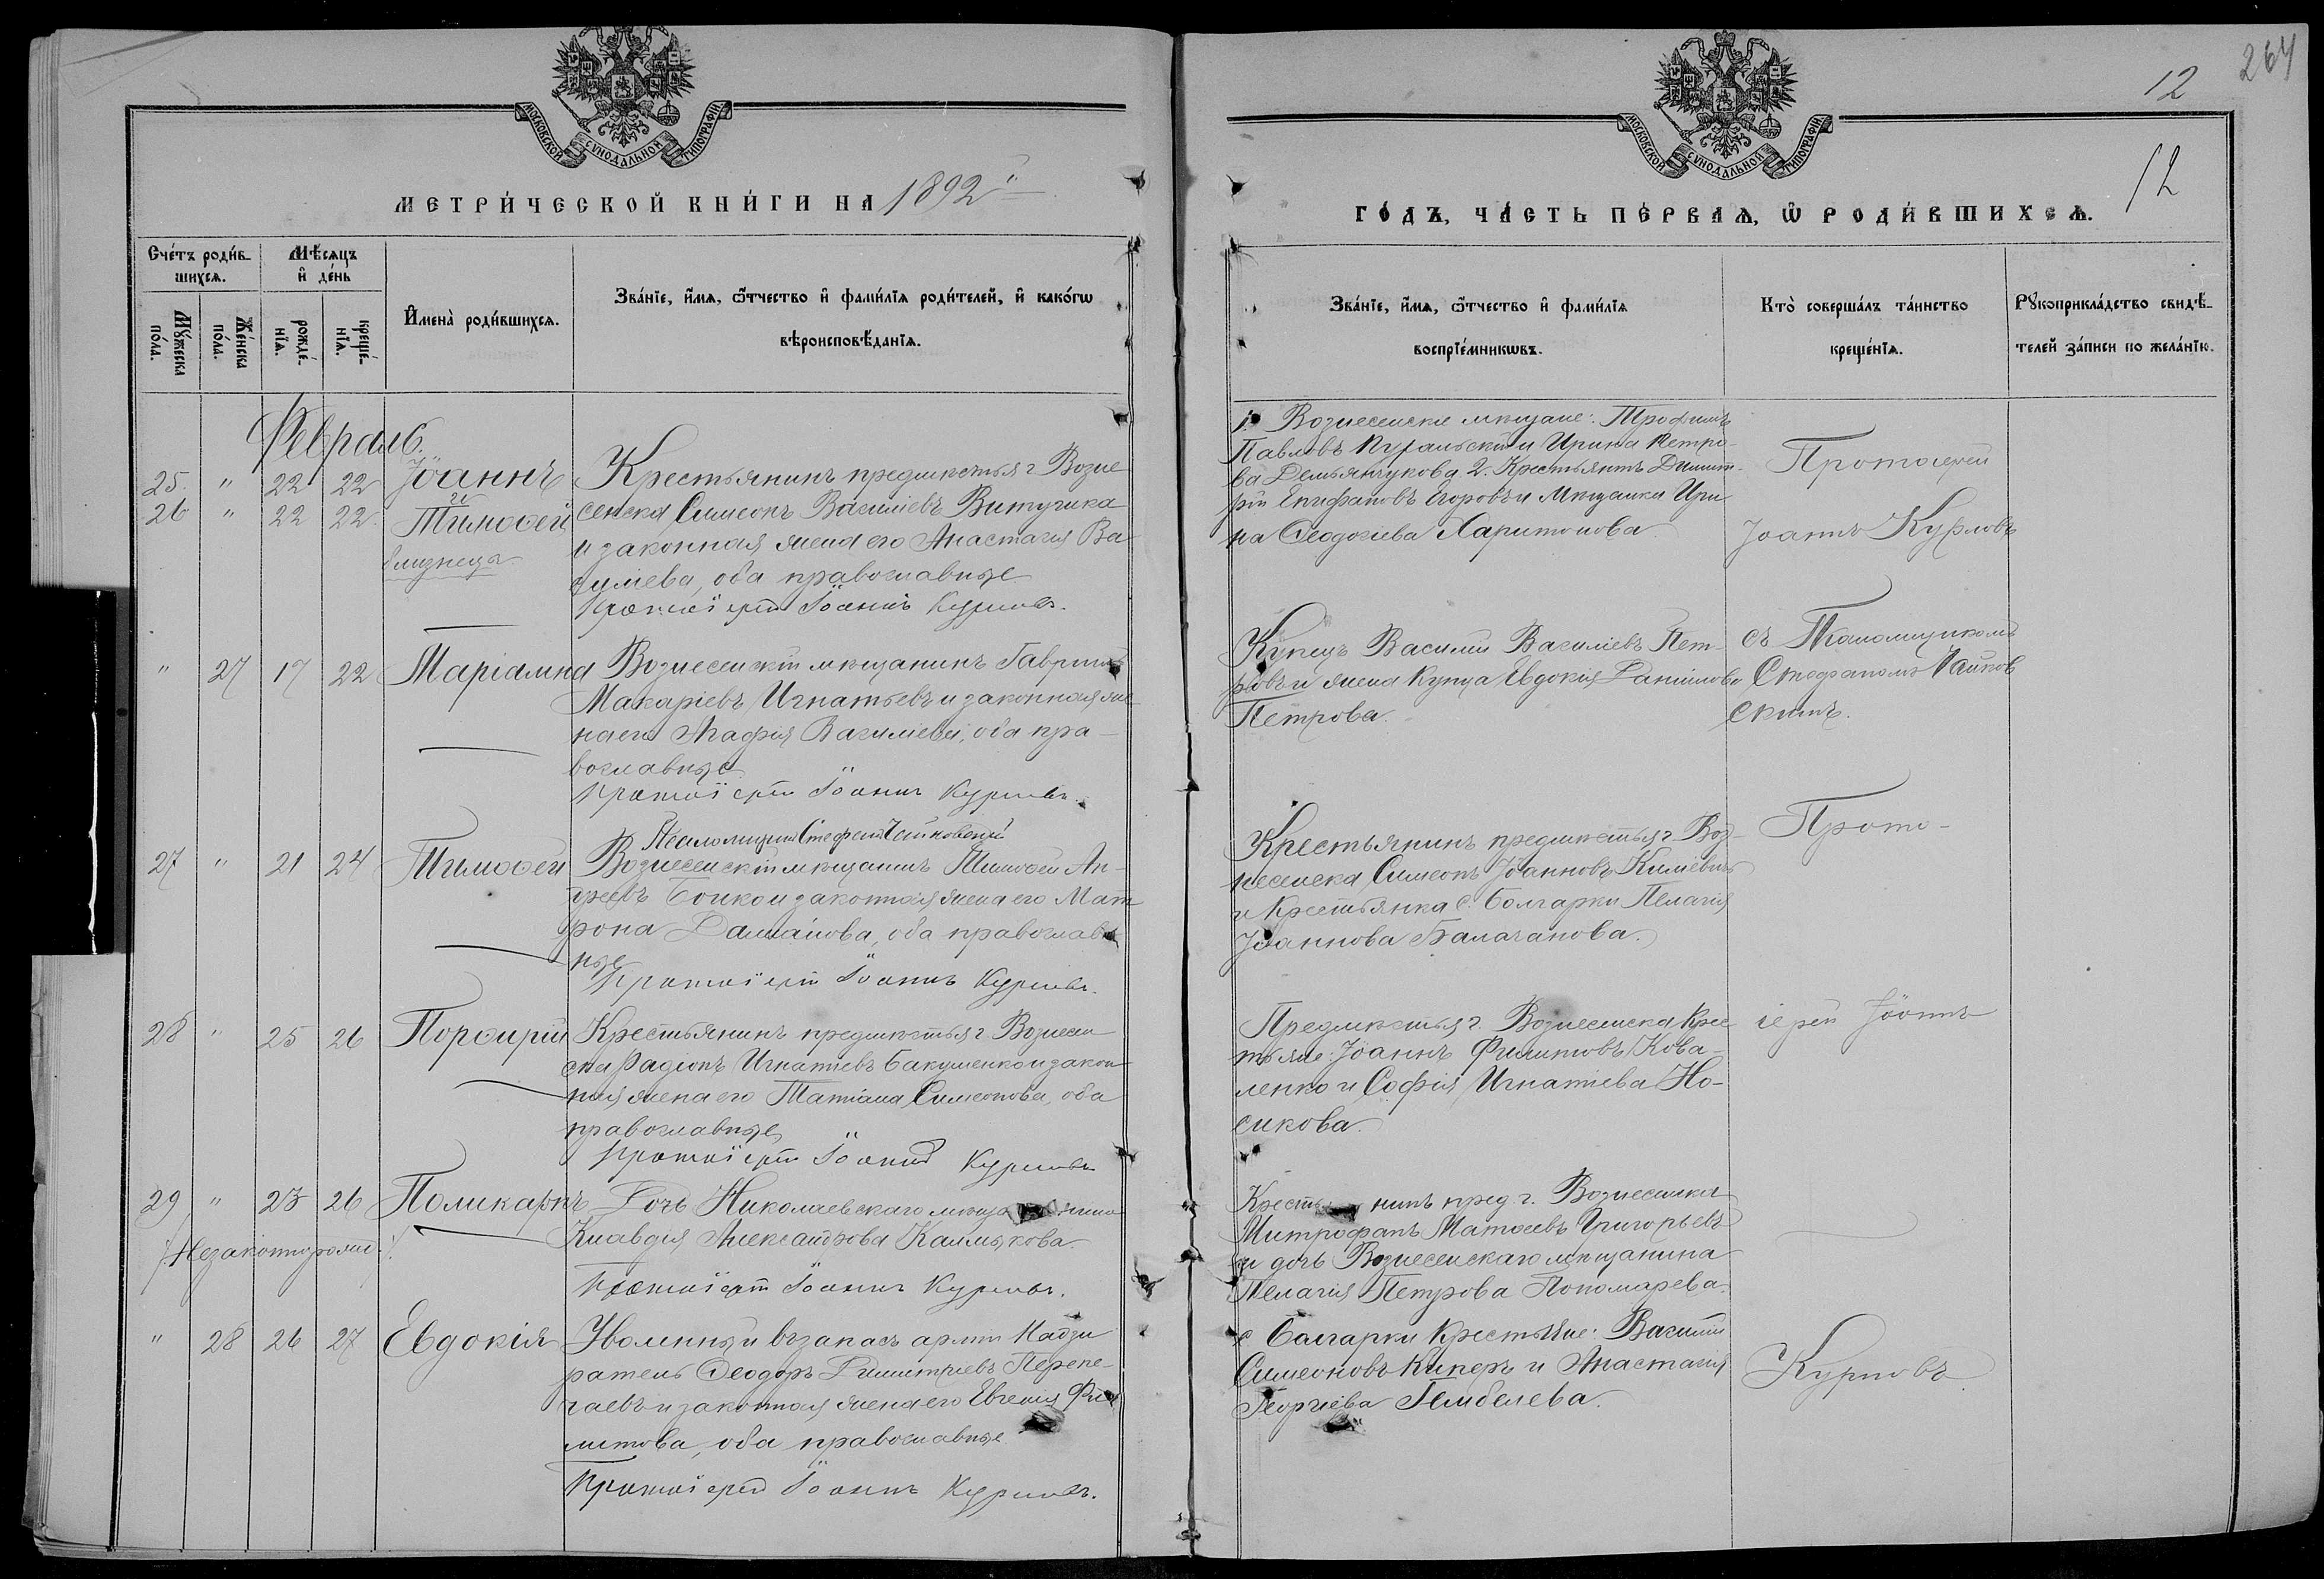 264
12
12
МОСКОВСКОЙ СѴНОДАЛЬНОЙ ТИПОГРАФІИ
МОСКОВСКОЙ СѴНОДАЛЬНОЙ ТИПОГРАФІИ
МЕТРИ́ЧЕСКОЙ КНИ́ГИ НА 1892 й
ГО́ДЪ, ЧА́СТЬ ПЕ́РВАѦ, Ѡ҆ РОДИ́ВШИХСѦ.
Сче́тъ роди́в-
шихсѧ.
Мѣ́сѧцъ
и҆ де́нь
Мꙋ́жеска
по́ла.
Же́нска
по́ла.
рожде́-
нїѧ.
креще́-
нїѧ.
И҆мена̀ роди́вшихсѧ.
Зва́нїе, и҆́мѧ, ѻ҆́тчество и҆ фами́лїѧ роди́телей, и҆ како́гѡ
вѣроисповѣ́данїѧ.
Зва́нїе, и҆́мѧ, ѻ҆́тчество и҆ фами́лїѧ
воспрїе́мникѡвъ.
Кто̀ соверша́лъ та́инство
креще́нїѧ.
Рꙋкоприкла́дство свидѣ́-
телей за́писи по жела́нїю.
Февраль.
25. " 22 22 Іоаннъ
26 " 22 22. и Тимоѳей
близнецы
Крестьянинъ предмѣстья г Возне
сенска Симеонъ Василіевъ Витушка
и законная жена его Анастасія Ва
силіева, оба православные
Протоіерей Іоаннъ Курловъ.
1. Вознесенскіе мѣщане: Трофимъ
Павловъ и Ирина Петро-
ва Демьянчукова 2. Крестьянинъ Димит-
рій Епифановъ Егоровъ и Мѣщанка Ири
на Ѳеодосіева Харитонова
Протоіерей
Іоаннъ Курловъ
" 27 17 22 Маріамна
Вознесенскій мѣщанинъ Гавріилъ
Макаріевъ Игнатьевъ и законная же
на его Агафія Василіева, оба пра-
вославные
Протоіерей Іоаннъ Курловъ.
Псаломщикъ Стефанъ Чайковскій
Купецъ Василій Василіевъ Пет-
ровъ и жена Купца Евдокія Даніилова
Петрова.
съ Псаломщикомъ
Стефаномъ Чайков
скимъ.
27 " 21 24 Тимоѳей
Вознесенскій мѣщанинъ Тимоѳей Ан-
дреевъ Бойко и законная жена его Мат
рона Даміанова, оба православ
ные
Протоіерей Іоаннъ Курловъ.
Крестьянинъ предмѣстья г. Воз-
несенска Симеонъ Іоанновъ
и Крестьянка с. Болгарки Пелагія
Іоаннова Балачанова.
Прото-
28 " 25 26 Порфирій
Крестьянинъ предмѣстья г Вознесен
ска Радіонъ Игнатіевъ Бакуменко и закон
ная жена его Татіана Симеонова, оба
православные
Протоіерей Іоаннъ Курловъ
Предмѣстья г. Вознесенска Крес
тьяне: Іоаннъ Филиповъ Кова-
ленко и Софія Игнатіева Но-
сикова.
іерей Іоаннъ
29 " 23 26 Поликарпъ
/Незаконнорожд./
Дочь Николаевскаго мѣщанина
Клавдія Александрова Калмыкова.
Протоіерей Іоаннъ Курловъ.
Крестьянинъ пред. г. Вознесенска
Митрофанъ Матѳеевъ Григорьевъ
и дочь Вознесенскаго мѣщанина
Пелагія Петрова Пономарева.
" 28 26 27 Евдокія
Уволенный въ запасъ арміи Надзи
ратель Ѳеодоръ Димитріевъ Перепе-
лаевъ и законная жена его Евгенія Фи
липова, оба православные
Протоіерей Іоаннъ Курловъ.
с Балгарки Крестьяне: Василій
Симеоновъ Киперъ и Анастасія
Георгіева Гембелева.
Курловъ